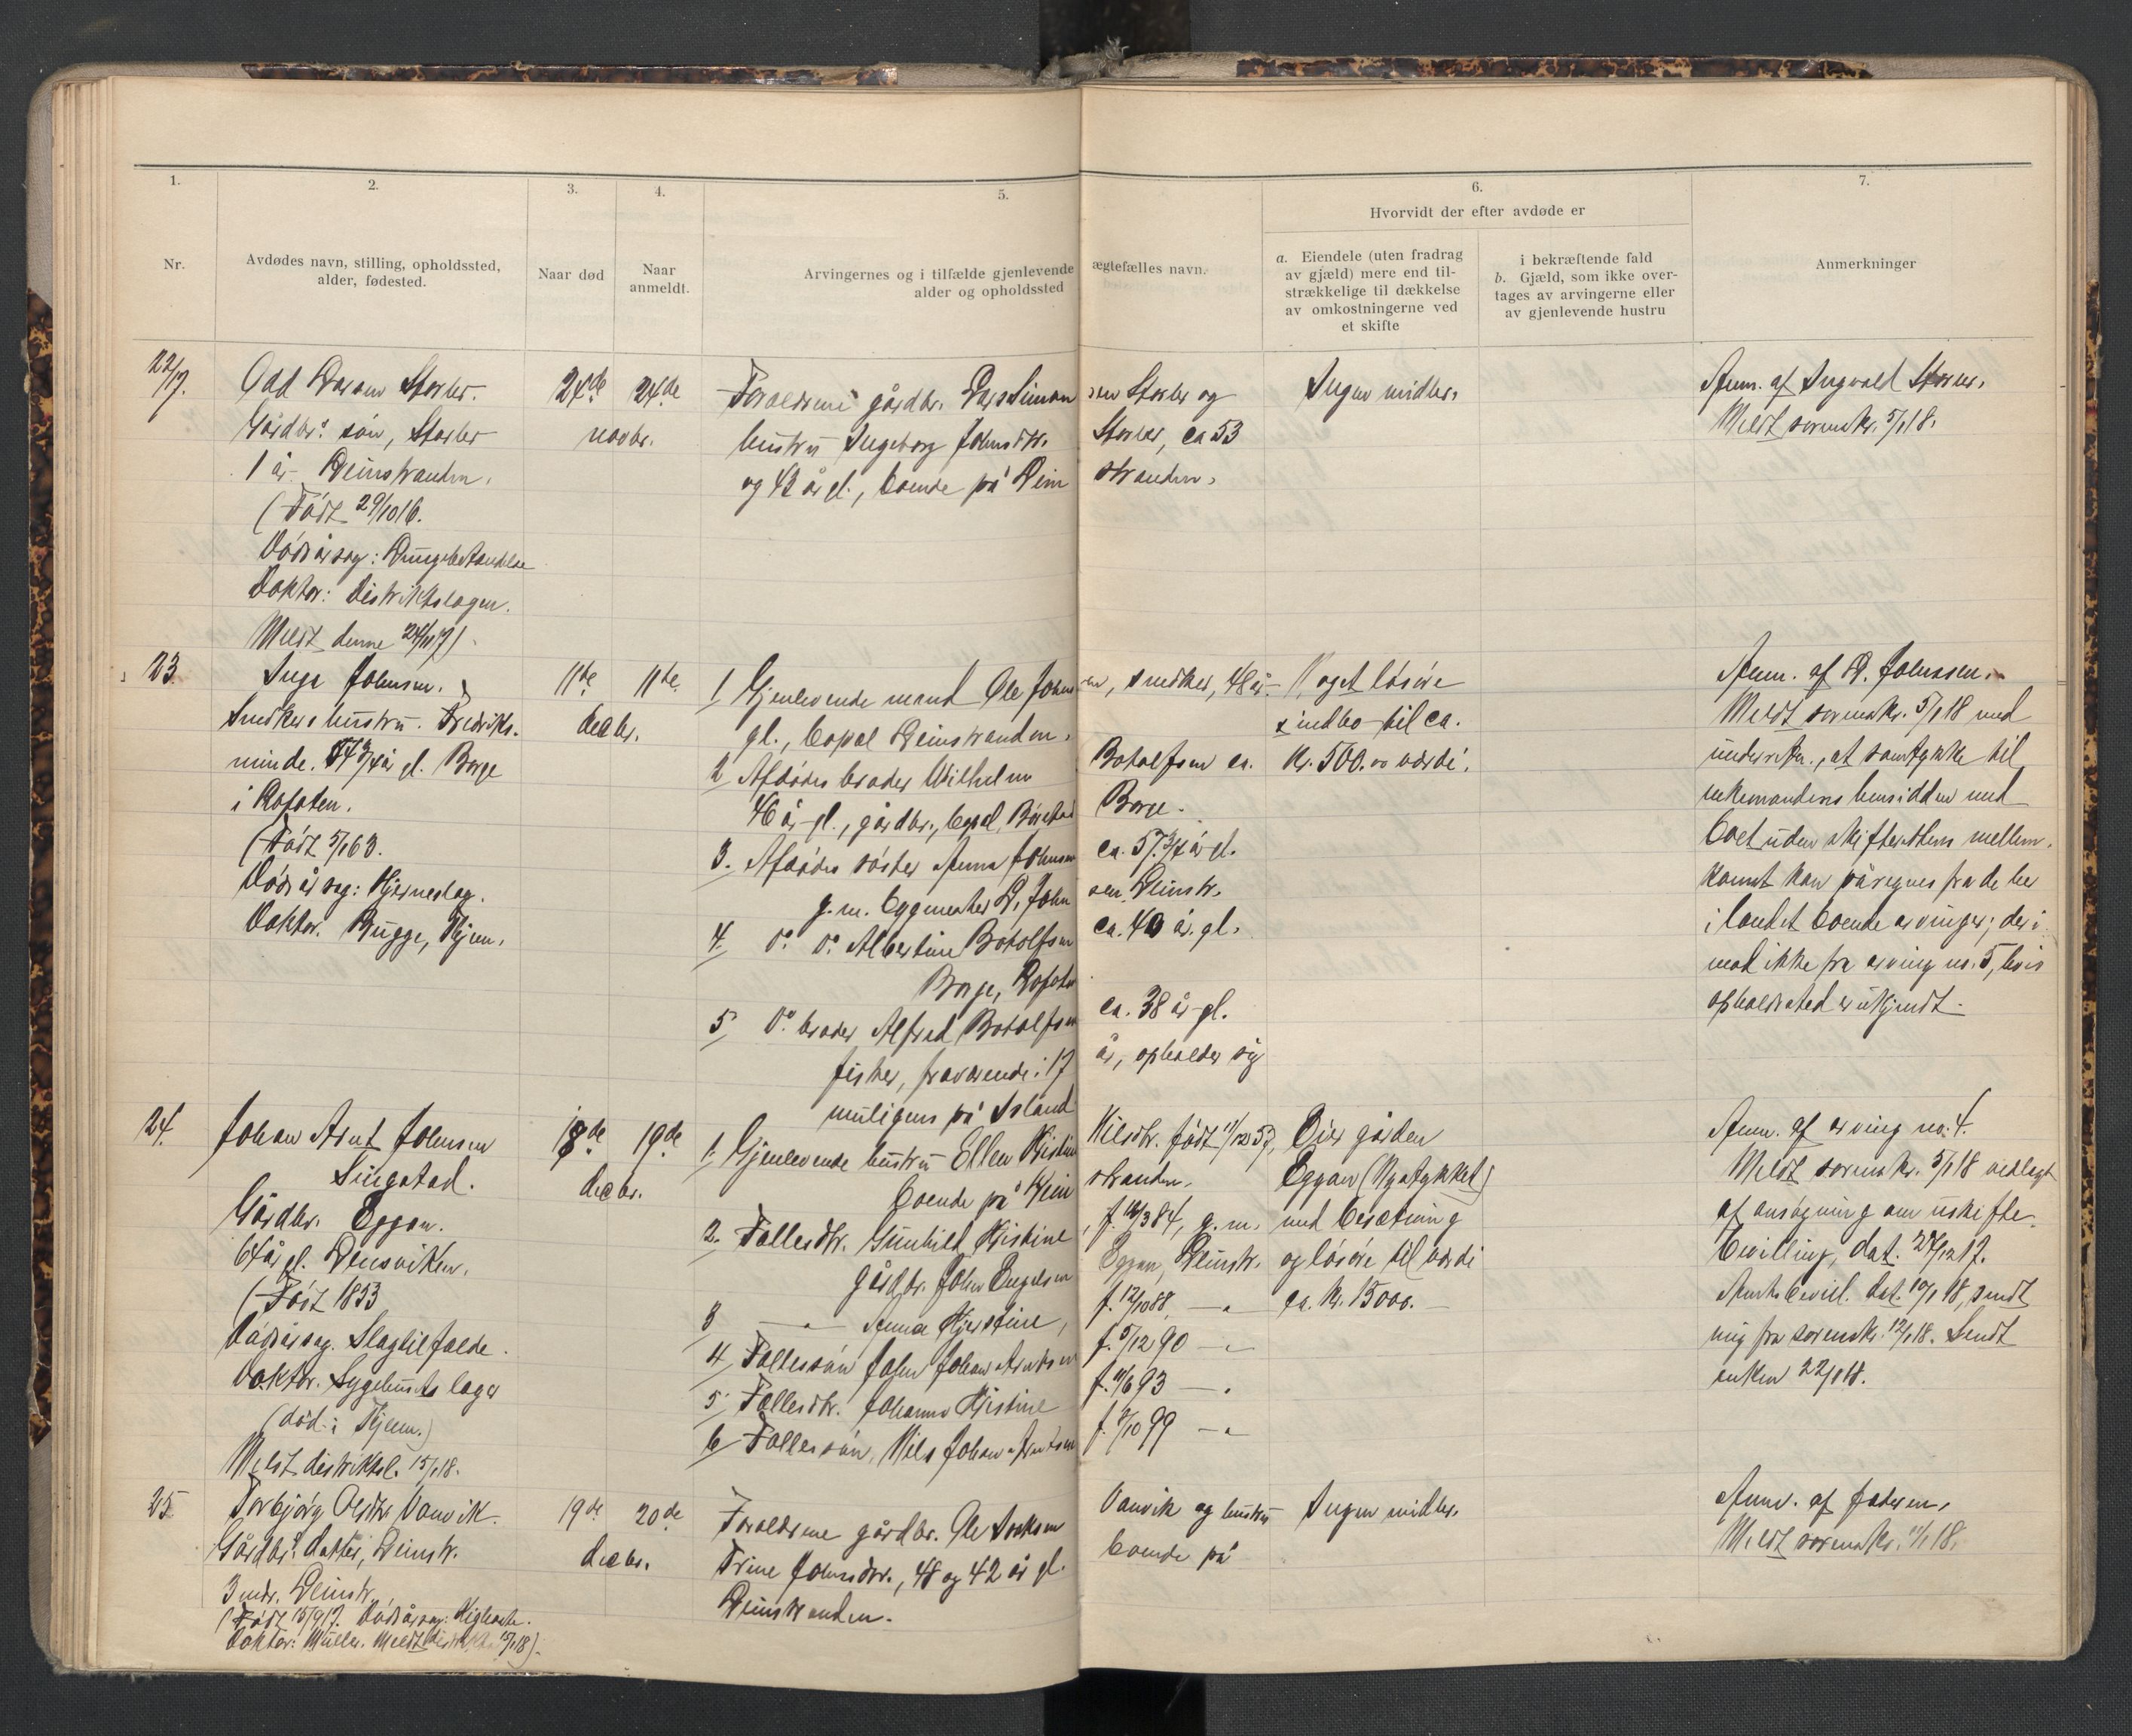 1.
2.
3.
4.
5.
6.
7.
Nr.
Avdødes navn, stilling, opholdssted,
alder, fødested.
Naar død
Naar
anmeldt.
Arvingernes og i tilfælde gjenlevende ægtefælles navn.
alder og opholdssted
Hvorvidt der efter avdøde er
a. Eiendele (uten fradrag
av gjæld) mere end til-
strækkelige til dækkelse
av omkostningerne ved
et skifte
i bekræftende fald
b. Gjæld, som ikke over-
tages av arvingerne eller
av gjenlevende hustru
Anmerkninger
22/17.
Odd Larsen Storler.
Gårdbrs. søn, Storler
1 år. Leinstranden.
(Født 29/10 16.
Dødsårsag: Lungebetændelse
Doktor: Distriktslægen.
Meldt denne 24/11 17).
24de
24de
novbr.
Forældrene gårdbr. Lars Simonsen Storler og
hustru Ingeborg Johnsdtr. Storler, ca 53
og 42 år gl., boende på Leinstranden.
Ingen midler.
Anm. af Ingvald Storler.
Meldt sorenskr. 5/1 18.
23.
Inga Johnsen.
Snedkers hustru. Fredriks-
minde. 54 3/4 år gl. Borge
i Lofoten.
(Født 3/1 63.
Dødsårsag: Hjerneslag.
Doktor. Bugge, Thjem.
11de
11de
decbr.
1. Gjenlevende mand Ole Johnsen, snedker, 48 år
gl., bopæl Leinstranden.
2 Afdødes broder Wilhelm Botolfsen ca.
46 år gl., gårdbr., bopæl Borge.
3. Afdødes søster Anna Johnsen ca. 57 3/4 år gl.
g.m. bygmester L. Johnsen, Leinstr.
4. do. do. Albertine Botolfsen ca. 40 år gl.
Borge, Lofoten
5 do. broder Alfred Botolfsen ca. 38 år gl.
fisker, fraværende i 17 år, opholder sig
muligens på Island
Noget løsøre
& indbo til ca.
Kr. 500.00 værdi.
Anm. af L. Johnsen.
Meldt sorenskr. 5/1 18 med
underretn., at samtykke til
enkemandens hensidden med
boet uden skifterettens mellem-
komst kan påregnes fra de her
i landet boende arvinger; der i-
mod ikke fra arving no. 5, hvis
opholdssted er ukjendt.
24.
Johan Arnt Johnsen
Singstad.
Gårdbr. Eggan.
64 år gl. Lensviken.
(Født 1853
Dødsårsag. Slagtilfælde.
Doktor. Sygehusets læger
(død i Thjem.)
Meldt distriktsl. 15/1 18.
18de
19de
decbr.
1. Gjenlevende hustru Ellen Kristine Nilsdtr. født 11/12 53,
boende på Leinstranden.
2. Fællesdtr. Gunhild Kristine, f. 16/3 84, g.m.
gårdbr. John Engelsen Eggan, Leinstr.
3 — " — Anna Kjerstine, f. 12/10 88, — " —
4 Fællessøn John Johan Arntsen f. 5/12 90 — " —
5. Fællesdtr. Johanna Kristine f. 11/6 93 — " —
6 Fællessøn, Nils Johan Arntsen f. 7/10 99 — " —
Eier gården
Eggan (Nystykket)
med besætning
og løsøre til værdi
ca. Kr. 15000.—
Anm. af arving no. 4.
Meldt sorenskr. 5/1 18 vedlagt
af ansøgning om uskifte-
bevilling, dat. 27/12 17.
bevill. dat. 10/1 18, sendt
mig fra sorenskr. 12/1 18. Sendt
enken 22/1 18.
25.
Torbjørg Olsdtr. Vanvik.
Gårdbrs. datter, Leinstr.
3 mdr. Leinstr.
(Født 15/9 17. Dødsårsag: Kighoste.
Doktor: Müller. Meldt 15/1 18).
19de
20de
decbr.
Forældrene gårdbr. Ole Vanvik og hustru
Trine Johnsdtr., 48 og 42 år gl. boende på
Leinstranden.
Ingen midler.
Anm. af faderen.
Meldt sorenskr. 11/1 18.